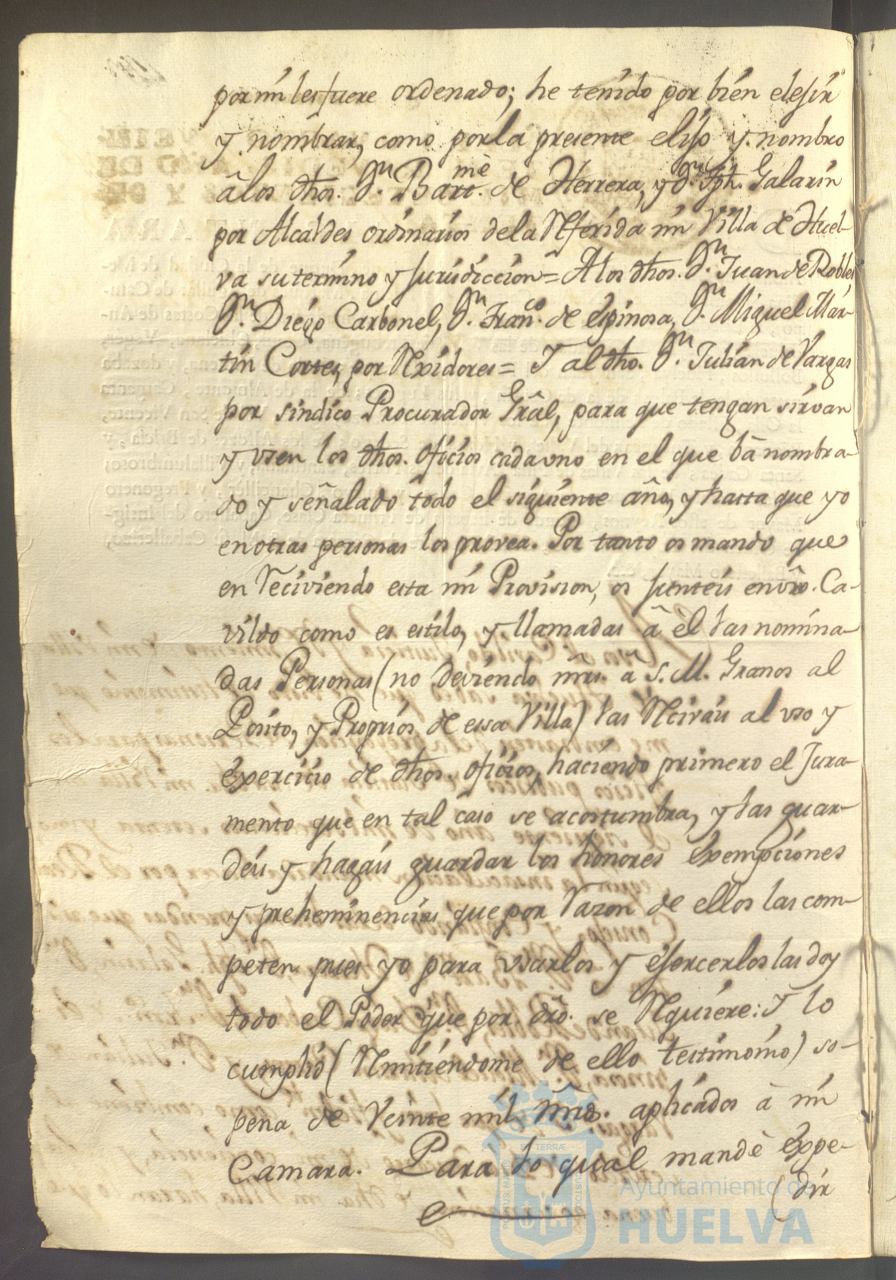 por mi les fuere ordenado; he tenido por bien elejir
y nombrar, como por la presente elijo y nombro
â los dhos. Dn. Bartme. de Herrera, y Dn. Jph. Galarin
por Alcaldes ordinarios de la Referida mi Villa de Huel-
va su termino y Jurisdiccion = A los dhos. Dn. Juan de Robles
Dn. Diego Carbonel, Dn. Franco. de Espinosa, Dn. Miguel Mar-
tin Cortes, por Rexidores = Y al dho. Dn. Julian de Vargas
por sindico Procurador Grâl, para que tengan sirvan
y usen los dhos. oficios cada uno en el que bâ nombra-
do y señalado todo el siguiente año, y hasta que yo
en otras personas los provea. Por tanto os mando que
en Reciviendo esta mi Provision, os junteis en vrô. Ca-
vildo como es estilo, y llamadas â èl las nomina-
das Personas (no deviendo mrs. a S. M. Granos al
Posito, y Proprios de essa Villa) las Reciváis al uso y
exercicio de dhos. oficios, haciendo primero el Jura-
mento que en tal caso se acostumbra, y las guar-
déis y hagáis guardar los honores exempciones
y preheminencias que por Razon de ellos las com-
peten pues yo para usarlos y ejercerlos las doy
todo el Poder que por drô. se Requiere: Y lo
cumplid (Remitiendome de ello testimonio) so-
pena de Veinte mil mrs. aplicados â mi
Camara. Para lo qual mandè expe-
dir
Ayuntamiento de
HUELVA